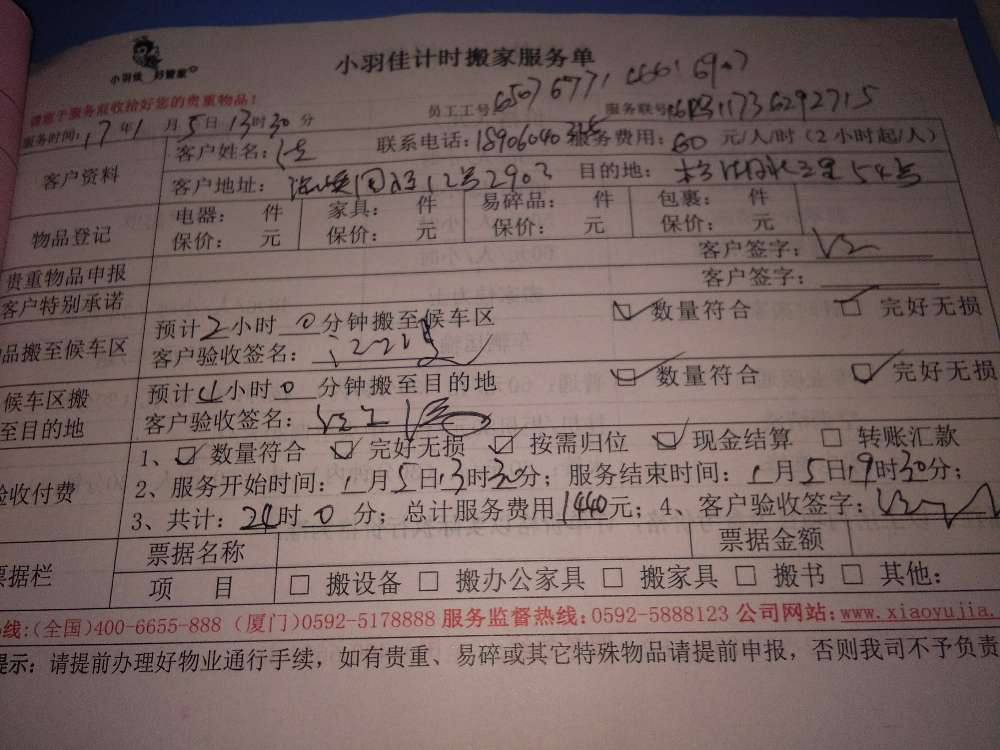 小羽佳 好管家
小羽佳计时搬家服务单
请您于服务前收拾好您的贵重物品!
员工工号 6507 6771 6661 6907 服务联号:
服务时间:17年1月5日13时30分
客户资料 客户姓名: 联系电话: 服务费用:60元/人/时(2小时起/人)
客户地址: 12号2903 目的地: 54号
物品登记 电器: 件 家具: 件 易碎品: 件 包裹: 件
保价: 元 保价: 元 保价: 元 保价: 元
贵重物品申报 客户签字:
客户特别承诺 客户签字:
品搬至候车区 预计2小时0分钟搬至候车区 ☑数量符合 ☑完好无损
客户验收签名:
候车区搬至目的地 预计4小时0分钟搬至目的地 ☑数量符合 ☑完好无损
客户验收签名:
验收付费 1、☑数量符合 ☑完好无损 ☑按需归位 ☑现金结算 □转账汇款
2、服务开始时间:1月5日13时30分;服务结束时间:1月5日19时30分;
3、共计:24时0分;总计服务费用1440元;4、客户验收签字:
票据栏 票据名称 票据金额
项 目 □搬设备 □搬办公家具 □搬家具 □搬书 □其他:
线:(全国)400-6655-888 (厦门)0592-5178888 服务监督热线:0592-5888123 公司网站:www.xiaoyujia.
提示:请提前办理好物业通行手续,如有贵重、易碎或其它特殊物品请提前申报,否则我司不予负责